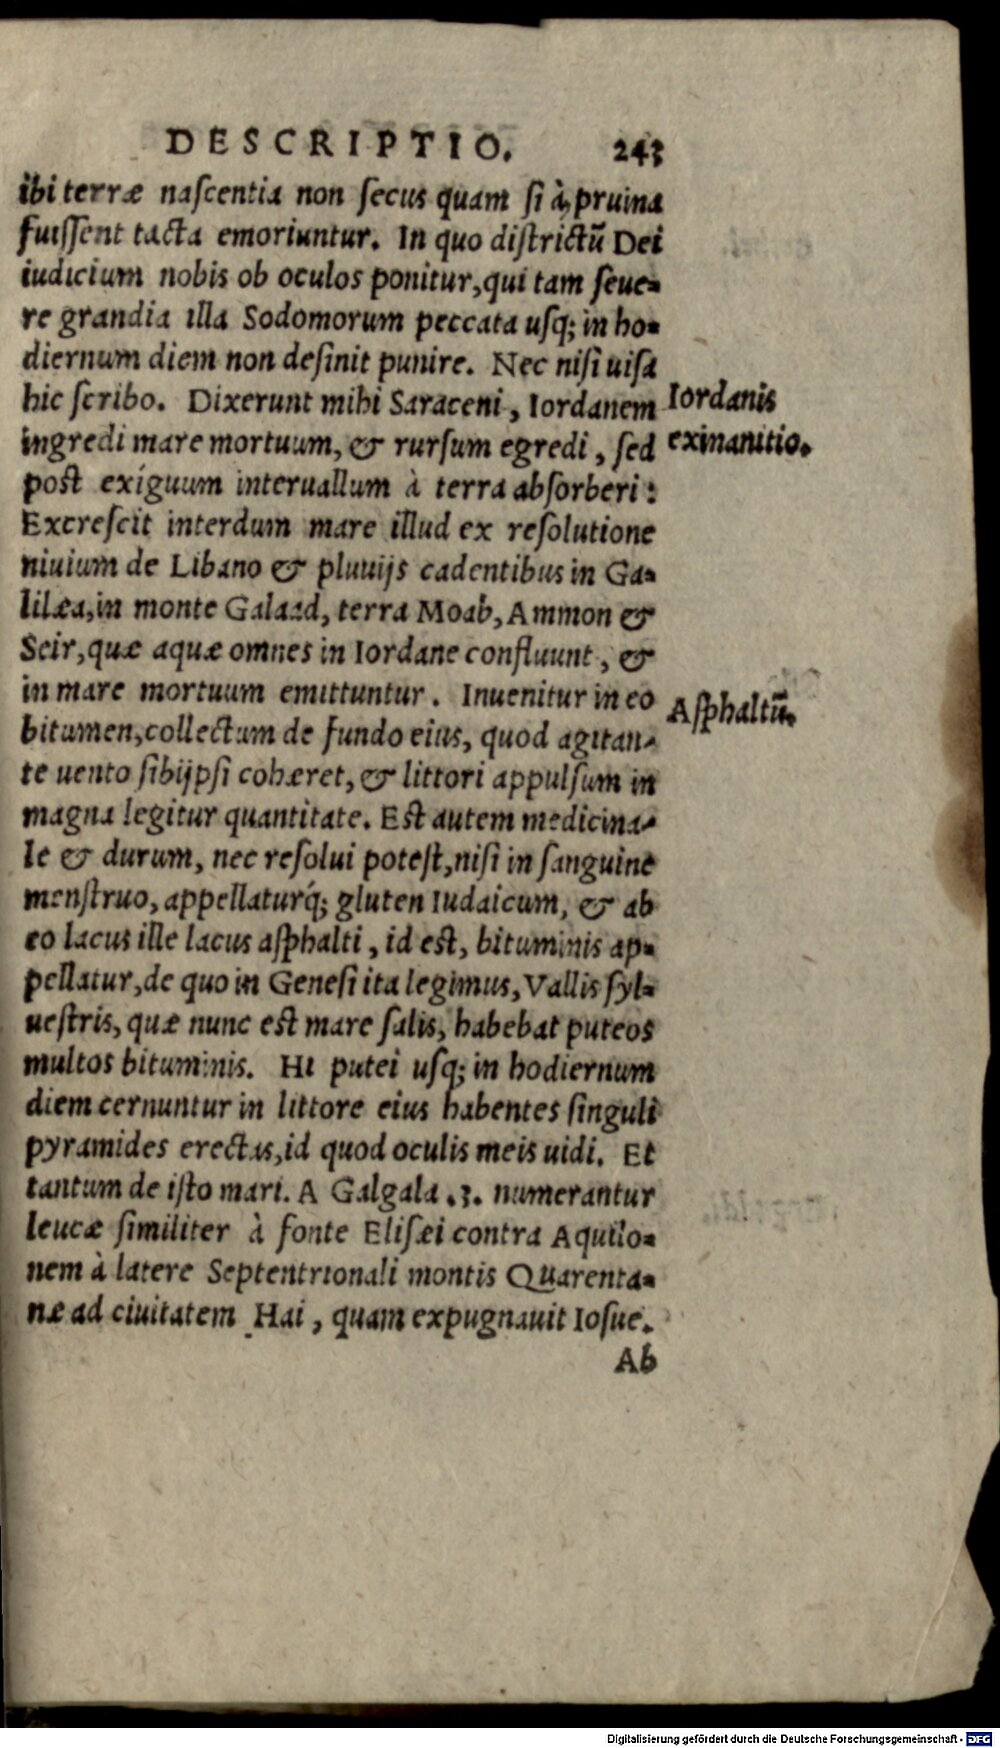 DESCRIPTIO. 243
ibi terræ nascentia non secus quam si à pruina
fuissent tacta emoriuntur. In quo districtũ Dei
iudicium nobis ob oculos ponitur, qui tam seue-
re grandia illa Sodomorum peccata usq; in ho-
diernum diem non desinit punire. Nec nisi uisa
hic scribo. Dixerunt mihi Saraceni, Iordanem
Iordanis
ingredi mare mortuum, & rursum egredi, sed
exinanitio.
post exíguum interuallum à terra absorberi:
Excrescit interdum mare illud ex resolutione
niuium de Libano & pluuijs cadentibus in Ga-
lilæa, in monte Galaad, terra Moab, Ammon &
Seir, quæ aquæ omnes in Iordane confluunt, &
in mare mortuum emittuntur. Inuenitur in eo
Asphaltũ.
bitumen, collectum de fundo eius, quod agitan-
te uento sibijpsi cohæret, & littori appulsum in
magna legitur quantitate. Est autem medicina-
le & durum, nec resolui potest, nisi in sanguine
menstruo, appellaturq́; gluten Iudaicum, & ab
eo lacus ille lacus asphalti, id est, bituminis ap-
pellatur, de quo in Genesi ita legimus, Vallis syl-
uestris, quæ nunc est mare salis, habebat puteos
multos bituminis. Hi putei usq; in hodiernum
diem cernuntur in littore eius habentes singuli
pyramides erectas, id quod oculis meis uidi. Et
tantum de isto mari. A Galgala .3. numerantur
leucæ similiter à fonte Elisæi contra Aquilo-
nem à latere Septentrionali montis Quarenta-
næ ad ciuitatem Hai, quam expugnauit Iosue.
Ab
Digitalisierung gefördert durch die Deutsche Forschungsgemeinschaft - DFG